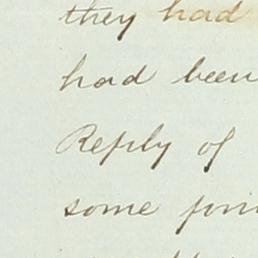 they had
had been
Reply of
some